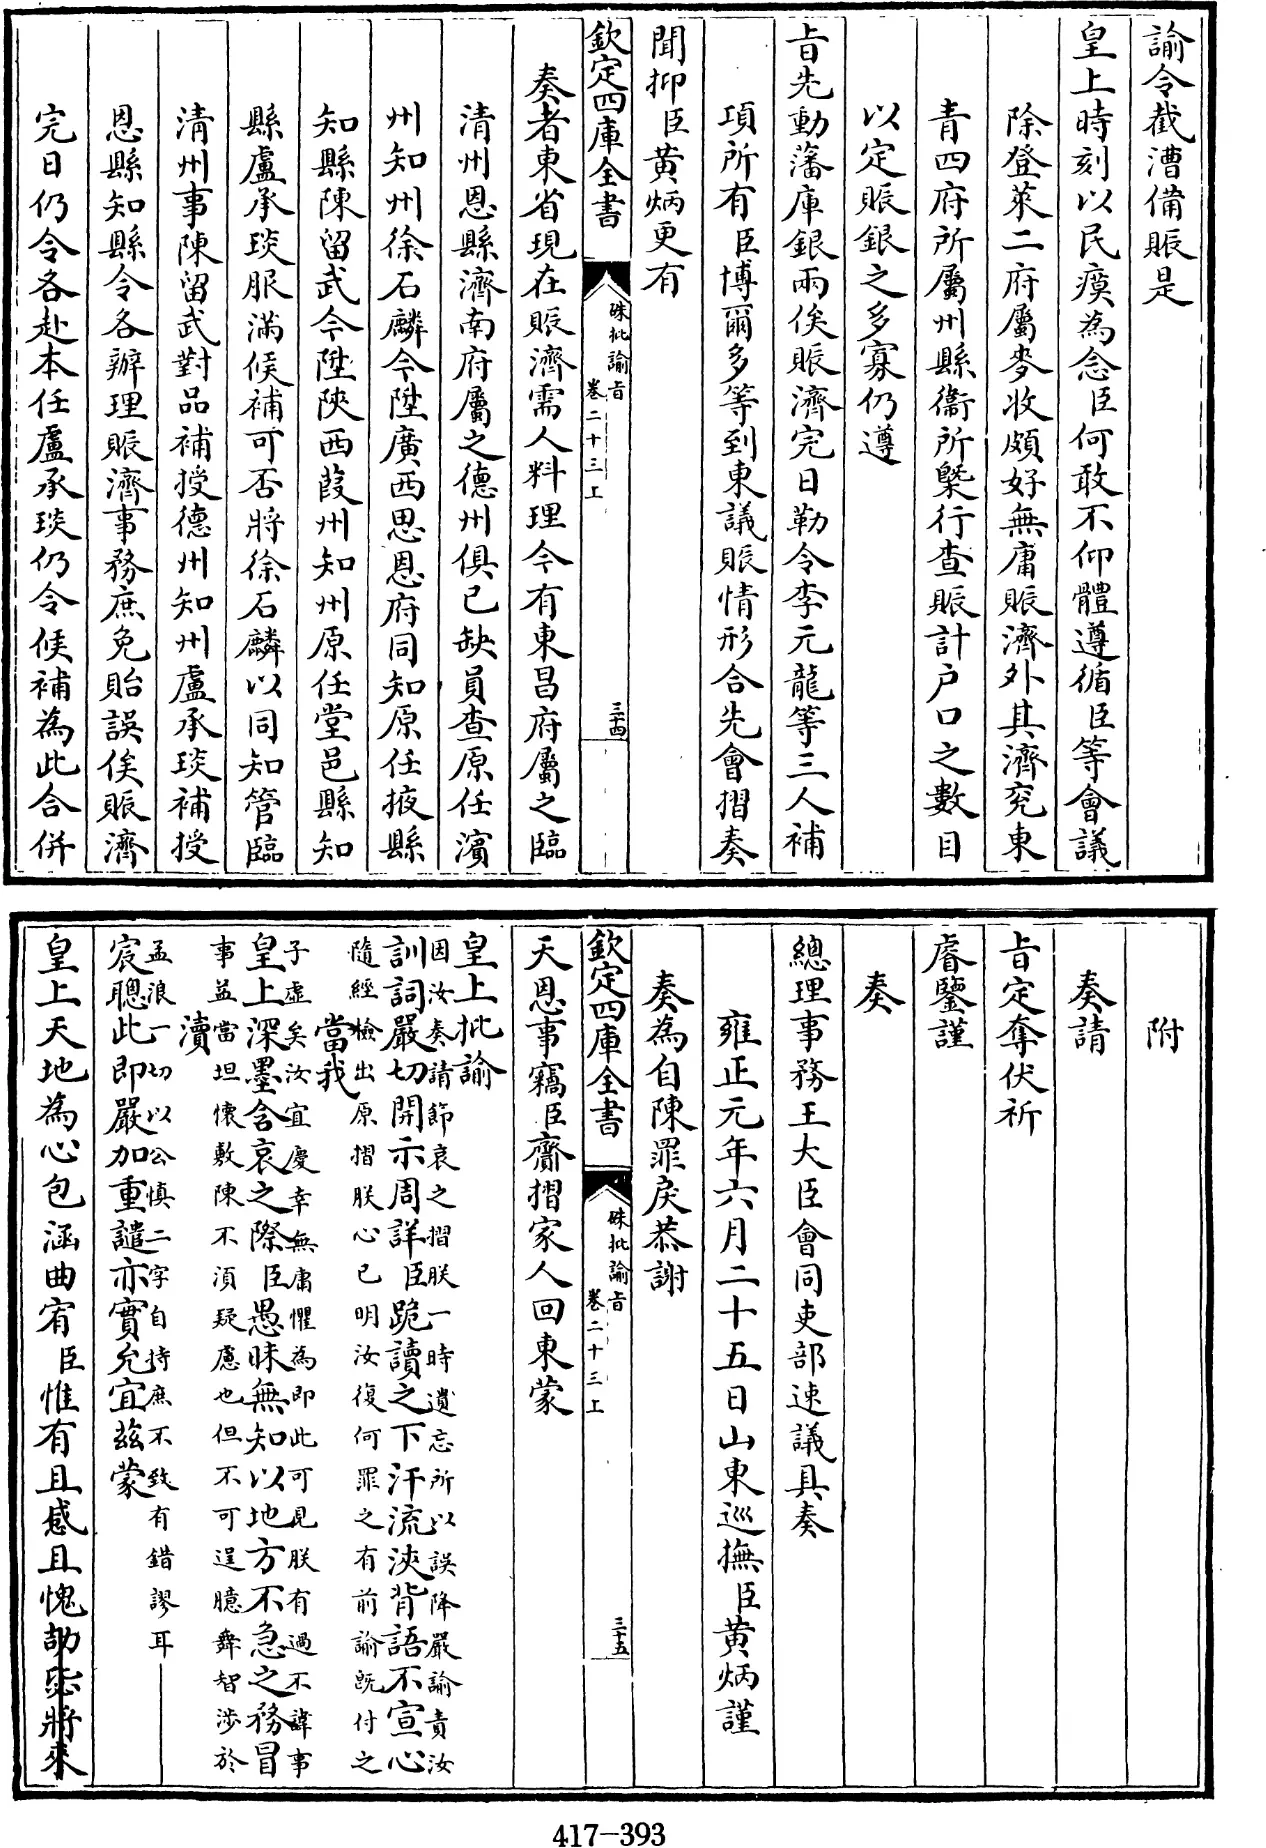 諭令截漕備賑是
皇上時刻以民瘼為念臣何敢不仰體遵循臣等會議
除登萊二府屬麥收頗好無庸賑濟外其濟兗東
青四府所屬州縣衛所槩行查賑計户口之數目
以定賑銀之多寡仍遵
旨先動藩庫銀兩俟賑濟完日勒令李元龍等三人補
項所有臣博爾多等到東議賑情形合先會摺奏
聞抑臣黄炳更有
欽定四庫全書
硃批諭旨
卷二十三上
三十四
奏者東省現在賑濟需人料理今有東昌府屬之臨
清州恩縣濟南府屬之德州俱已缺員查原任濱
州知州徐石麟今陞廣西思恩府同知原任掖縣
知縣陳留武今陞陝西葭州知州原任堂邑縣知
縣盧承琰服滿候補可否將徐石麟以同知管臨
清州事陳留武對品補授德州知州盧承琰補授
恩縣知縣令各辦理賑濟事務庶免貽誤俟賑濟
完日仍令各赴本任盧承琰仍令候補為此合併
附
奏請
旨定奪伏祈
睿鑒謹
奏
總理事務王大臣會同吏部速議具奏
雍正元年六月二十五日山東巡撫臣黄炳謹
奏為自陳罪戾恭謝
欽定四庫全書
硃批諭旨
卷二十三上
三十五
天恩事竊臣齎摺家人回東蒙
皇上批諭
因汝奏請節哀之摺朕一時遺忘所以誤降嚴諭責汝
訓詞嚴切開示周詳臣跪讀之下汗流浹背語不宣心
隨經檢出原摺朕心已明汝復何罪之有前諭旣付之
當我
子虛矣汝宜慶幸無庸懼為即此可見朕有過不諱事
皇上深墨含哀之際臣愚昧無知以地方不急之務冒
事益當坦懷敷陳不須疑慮也但不可逞臆舞智涉於
瀆
孟浪一切以公慎二字自持庶不致有錯謬耳
宸聰此即嚴加重譴亦實允宜兹蒙
皇上天地為心包涵曲宥臣惟有且感且愧勉毖將來
417-393